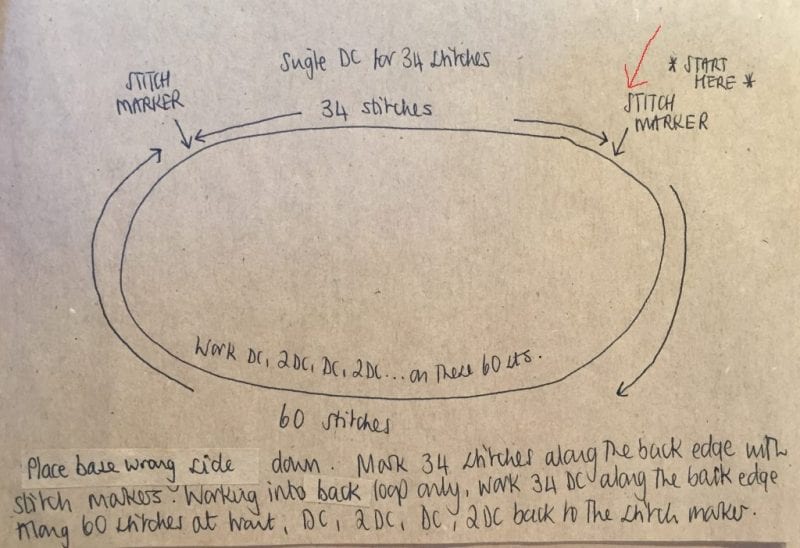 Single DC for 34 stitches
STITCH
MARKER
34 stitches
* START
HERE *
STITCH
MARKER
Work DC, 2DC, DC, 2DC... on these 60 sts.
60 stitches
Place base wrong side down. Mark 34 stitches along the back edge with
stitch markers. Working into back loop only, work 34 DC along the back edge
60 stitches at front, DC, 2DC, DC, 2DC back to the stitch marker.